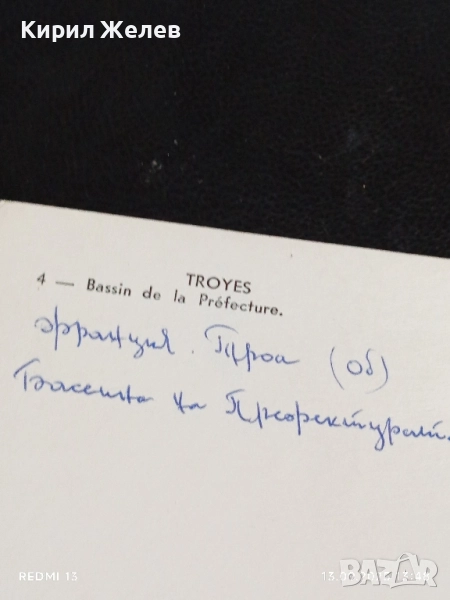 Кирил Желев
TROYES
4 — Bassin de la Préfecture.
Франция. Троа (Об)
Басейна на Префектурат
REDMI 13
bazar